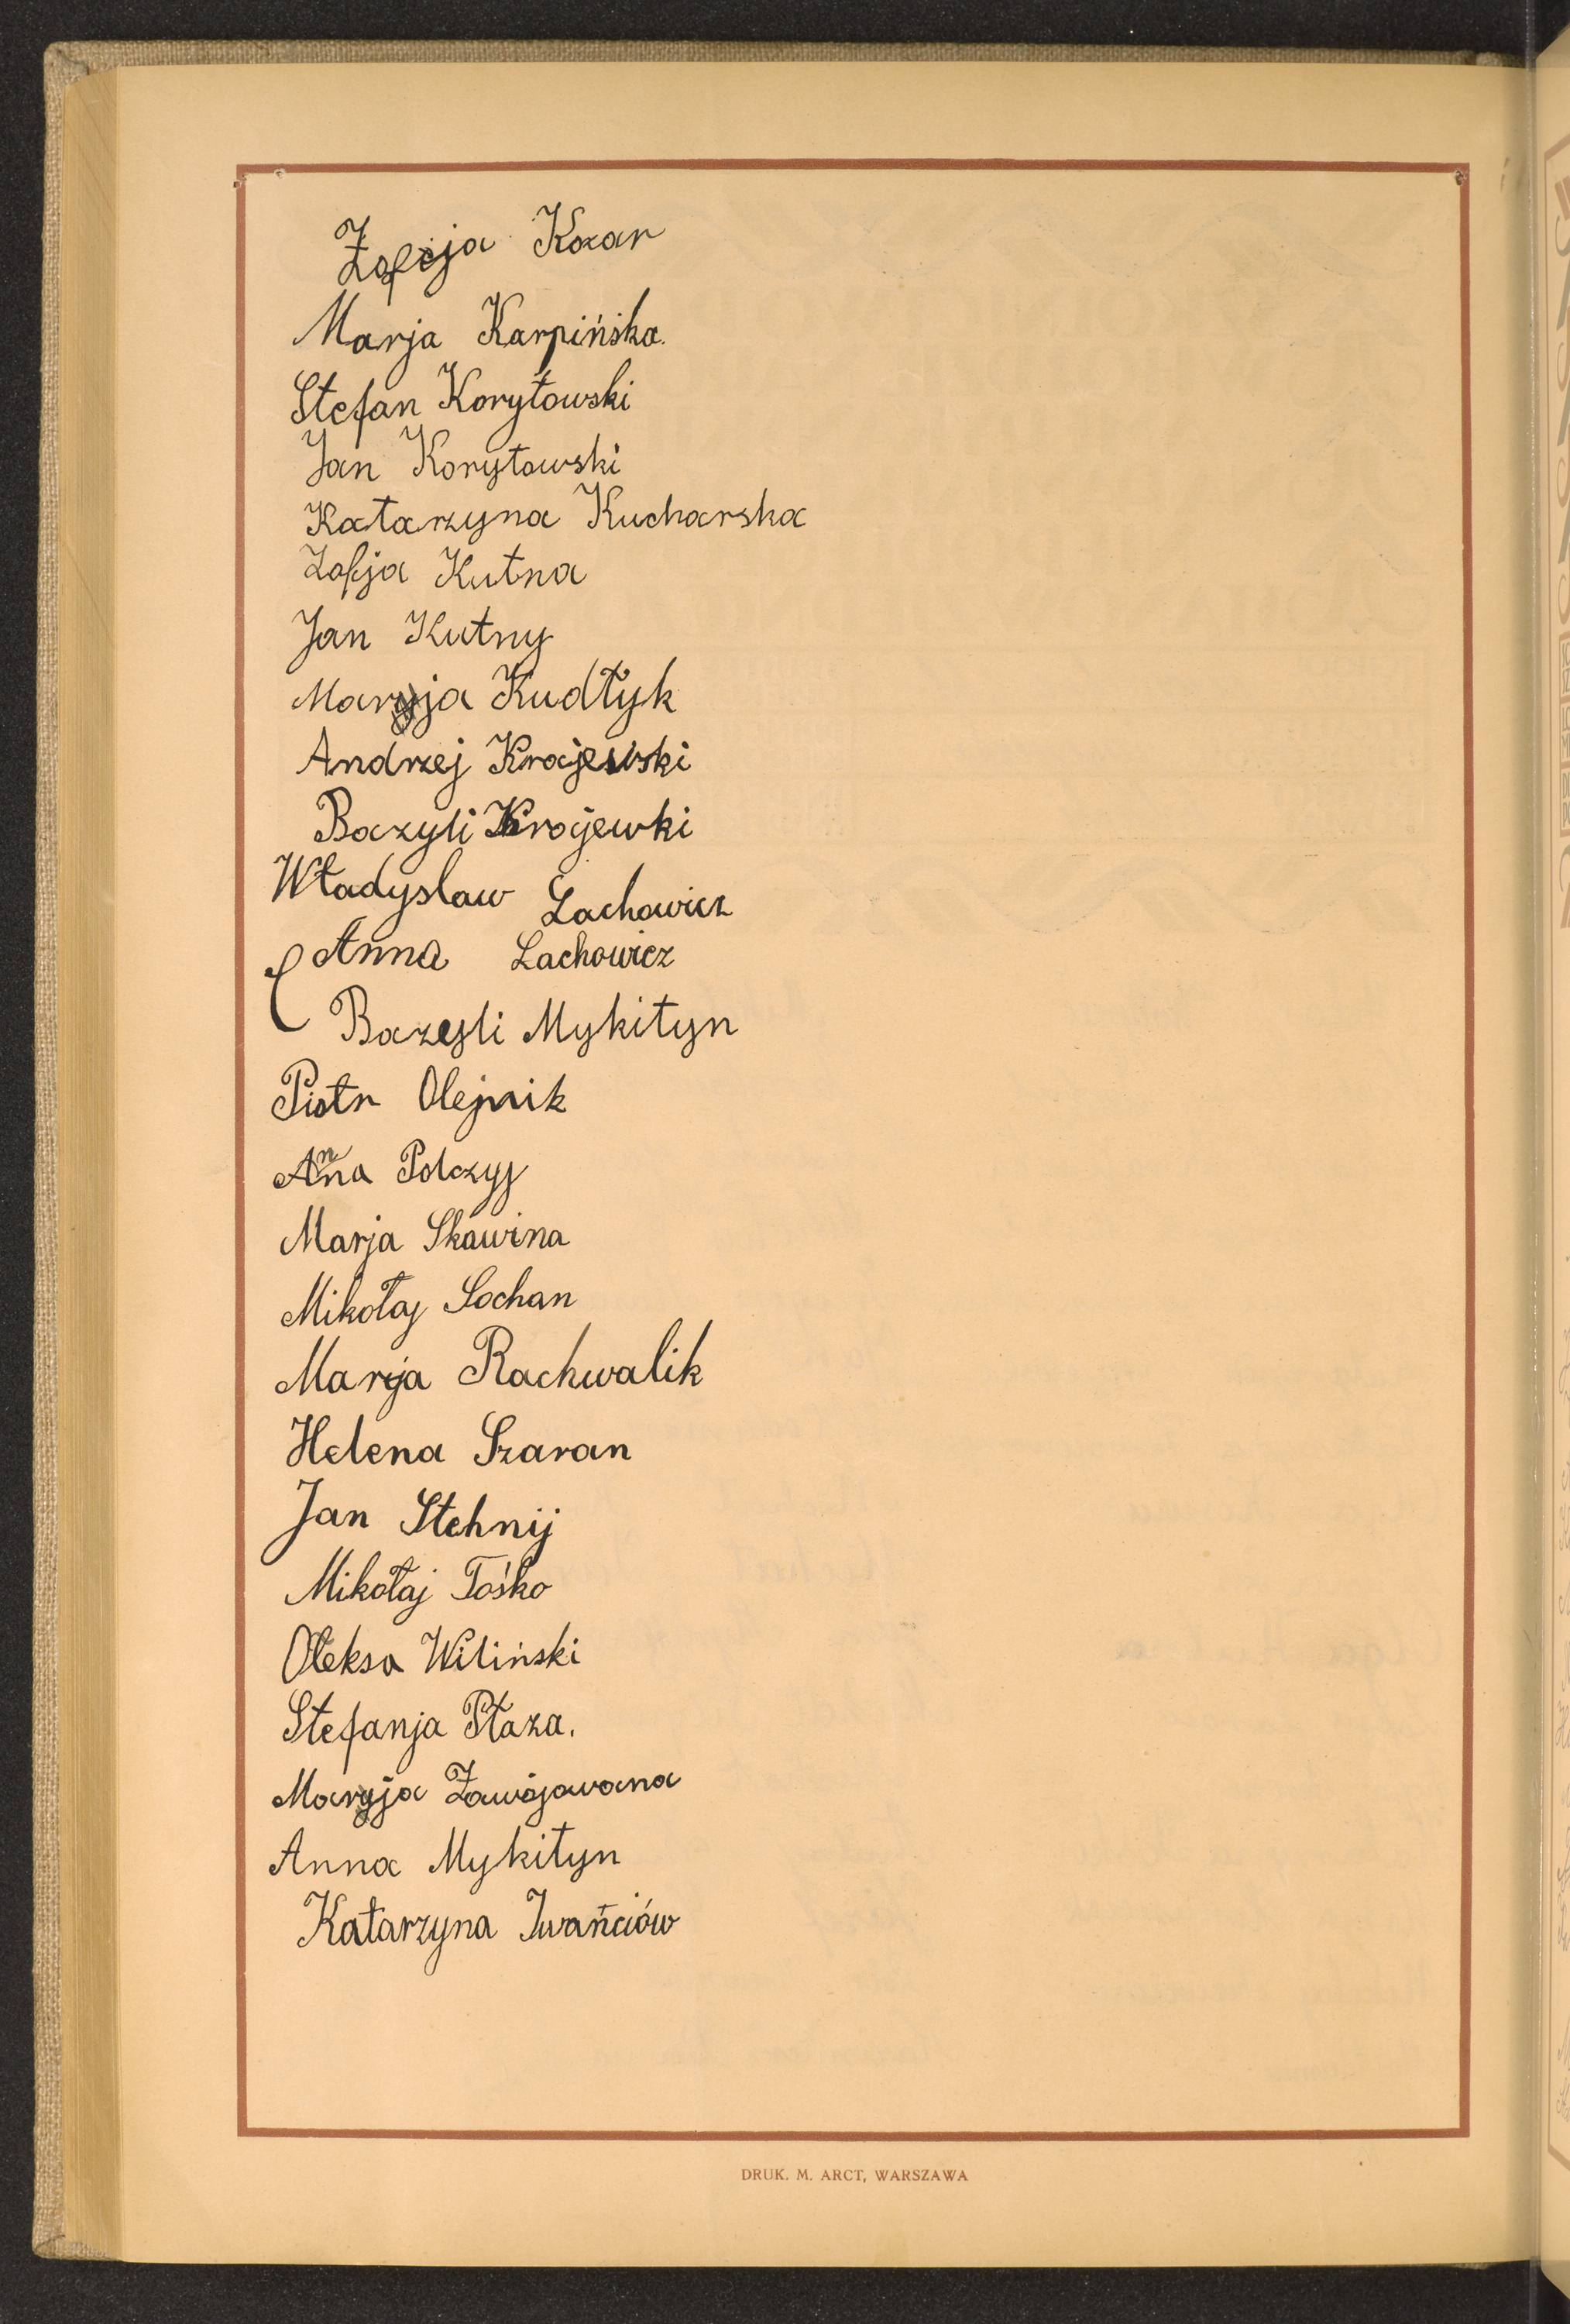 Zofja Kozar
Marja Karpińska.
Stefan Korytowski
Jan Korytowski
Katarzyna Kucharska
Zofja Kutna
Jan Kutny
Marja Kudłyk
Andrzej Krajewski
Bazyli Krajewki
Władysław Lachowicz
Anna Lachowicz
Bazyli Mykityn
Piotr Olejnik
Anna Polczyj
Marja Skawina
Mikołaj Sochan
Marja Rachwalik
Helena Szaran
Jan Stehnij
Mikołaj Tośko
Oleksa Wiliński
Stefanja Płaza.
Marja Zawojowana
Anna Mykityn
Katarzyna Iwańciów
DRUK. M. ARCT, WARSZAWA